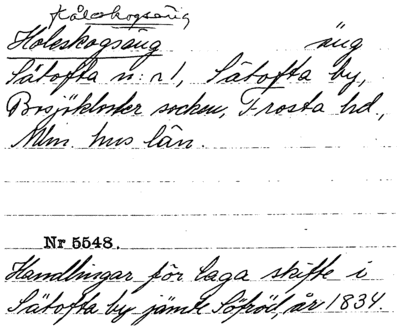 Kåleskogsäng
Holeskogsäng äng
Sätofta n:r 1, Sätofta by,
Bosjökloster socken, Frosta hd,
Mlm hus län.
Nr 5548.
Handlingar för laga skifte i
Sätofta by jämte Sjöröd, år 1834